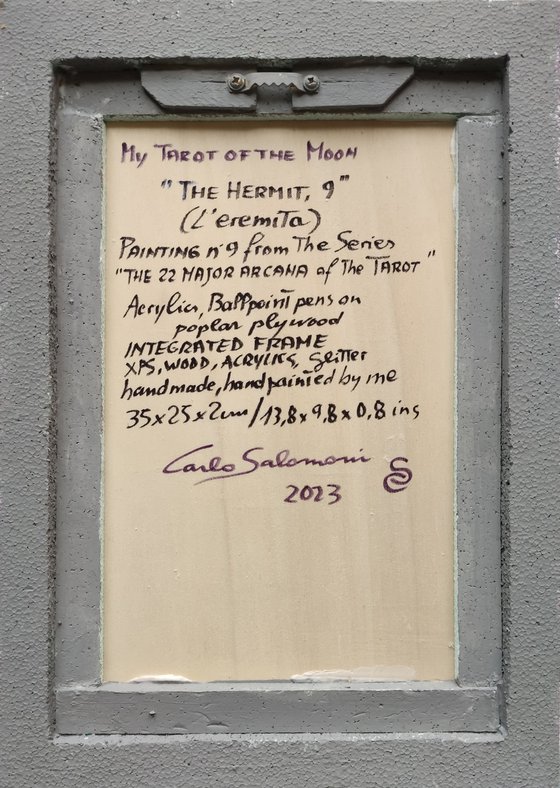 My TAROT OF THE MOON
"THE HERMIT, 9"
(L'eremita)
PAINTING n°9 from The Series
"THE 22 MAJOR ARCANA of The TAROT"
Acrylics, Ballpoint pens on
poplar plywood
INTEGRATED FRAME
XPS, WOOD, ACRYLICS, glitter
handmade, handpainted by me
35x25x2cm/13,8x9,8x0,8 ins
Carlo Salomoni
2023